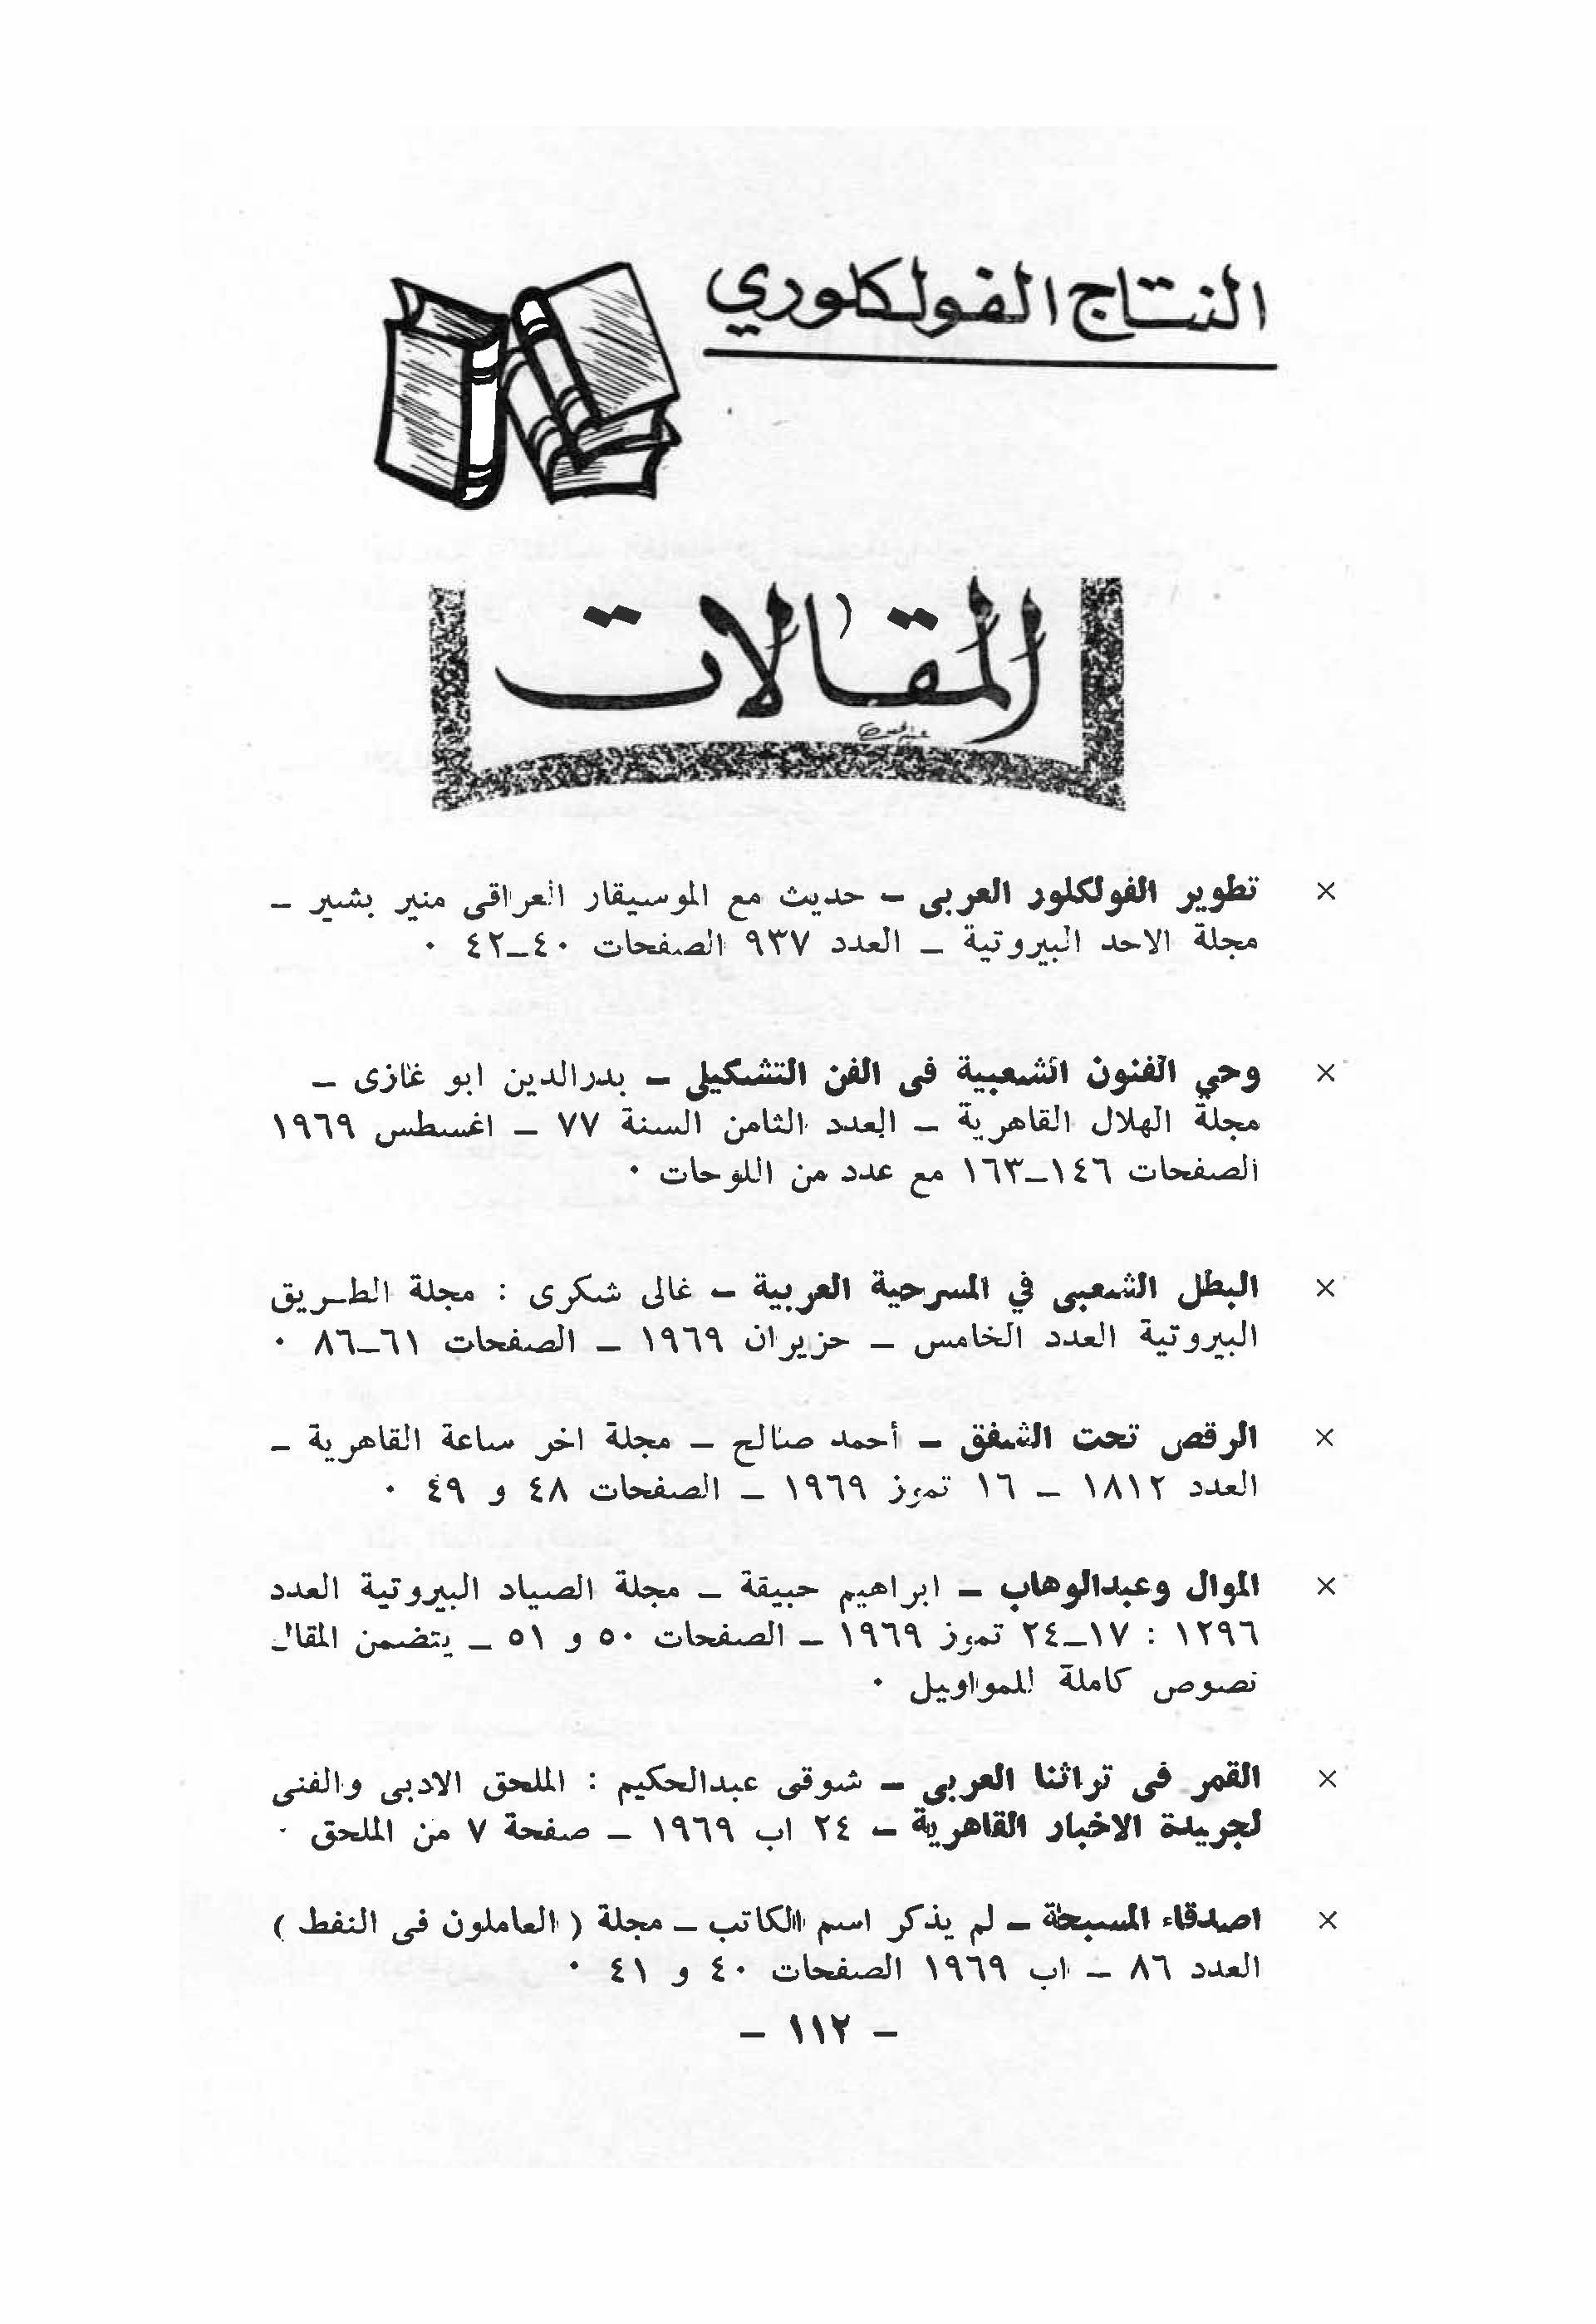 النتاج الفولكلوري
المقالات
× تطوير الفولكلور العربى – حديث مع الموسيقار العراقى منير بشير –
مجلة الاحد البيروتية – العدد ٩٣٧ الصفحات ٤٠–٤٢ ٠
× وحي الفنون الشعبية فى الفن التشكيلي – بدرالدين ابو غازى –
مجلة الهلال القاهرية – العدد الثامن السنة ٧٧ – اغسطس ١٩٦٩
الصفحات ١٤٦–١٦٣ مع عدد من اللوحات ٠
× البطل الشعبى في المسرحية العربية – غالى شكرى : مجلة الطريق
البيروتية العدد الخامس – حزيران ١٩٦٩ – الصفحات ٦١–٨٦ ٠
× الرقص تحت الشفق – أحمد صالح – مجلة اخر ساعة القاهرية –
العدد ١٨١٢ – ١٦ تموز ١٩٦٩ – الصفحات ٤٨ و ٤٩ ٠
× الموال وعبدالوهاب – ابراهيم حبيقة – مجلة الصياد البيروتية العدد
١٢٩٦ : ١٧–٢٤ تموز ١٩٦٩ – الصفحات ٥٠ و ٥١ – يتضمن المقال
نصوص كاملة للمواويل ٠
× القمر فى تراثنا العربى – شوقى عبدالحكيم : الملحق الادبى والفنى
لجريدة الاخبار القاهرية – ٢٤ اب ١٩٦٩ – صفحة ٧ من الملحق ٠
× اصدقاء المسبحة – لم يذكر اسم الكاتب – مجلة ( العاملون فى النفط )
العدد ٨٦ – اب ١٩٦٩ الصفحات ٤٠ و ٤١ ٠
– ١١٢ –